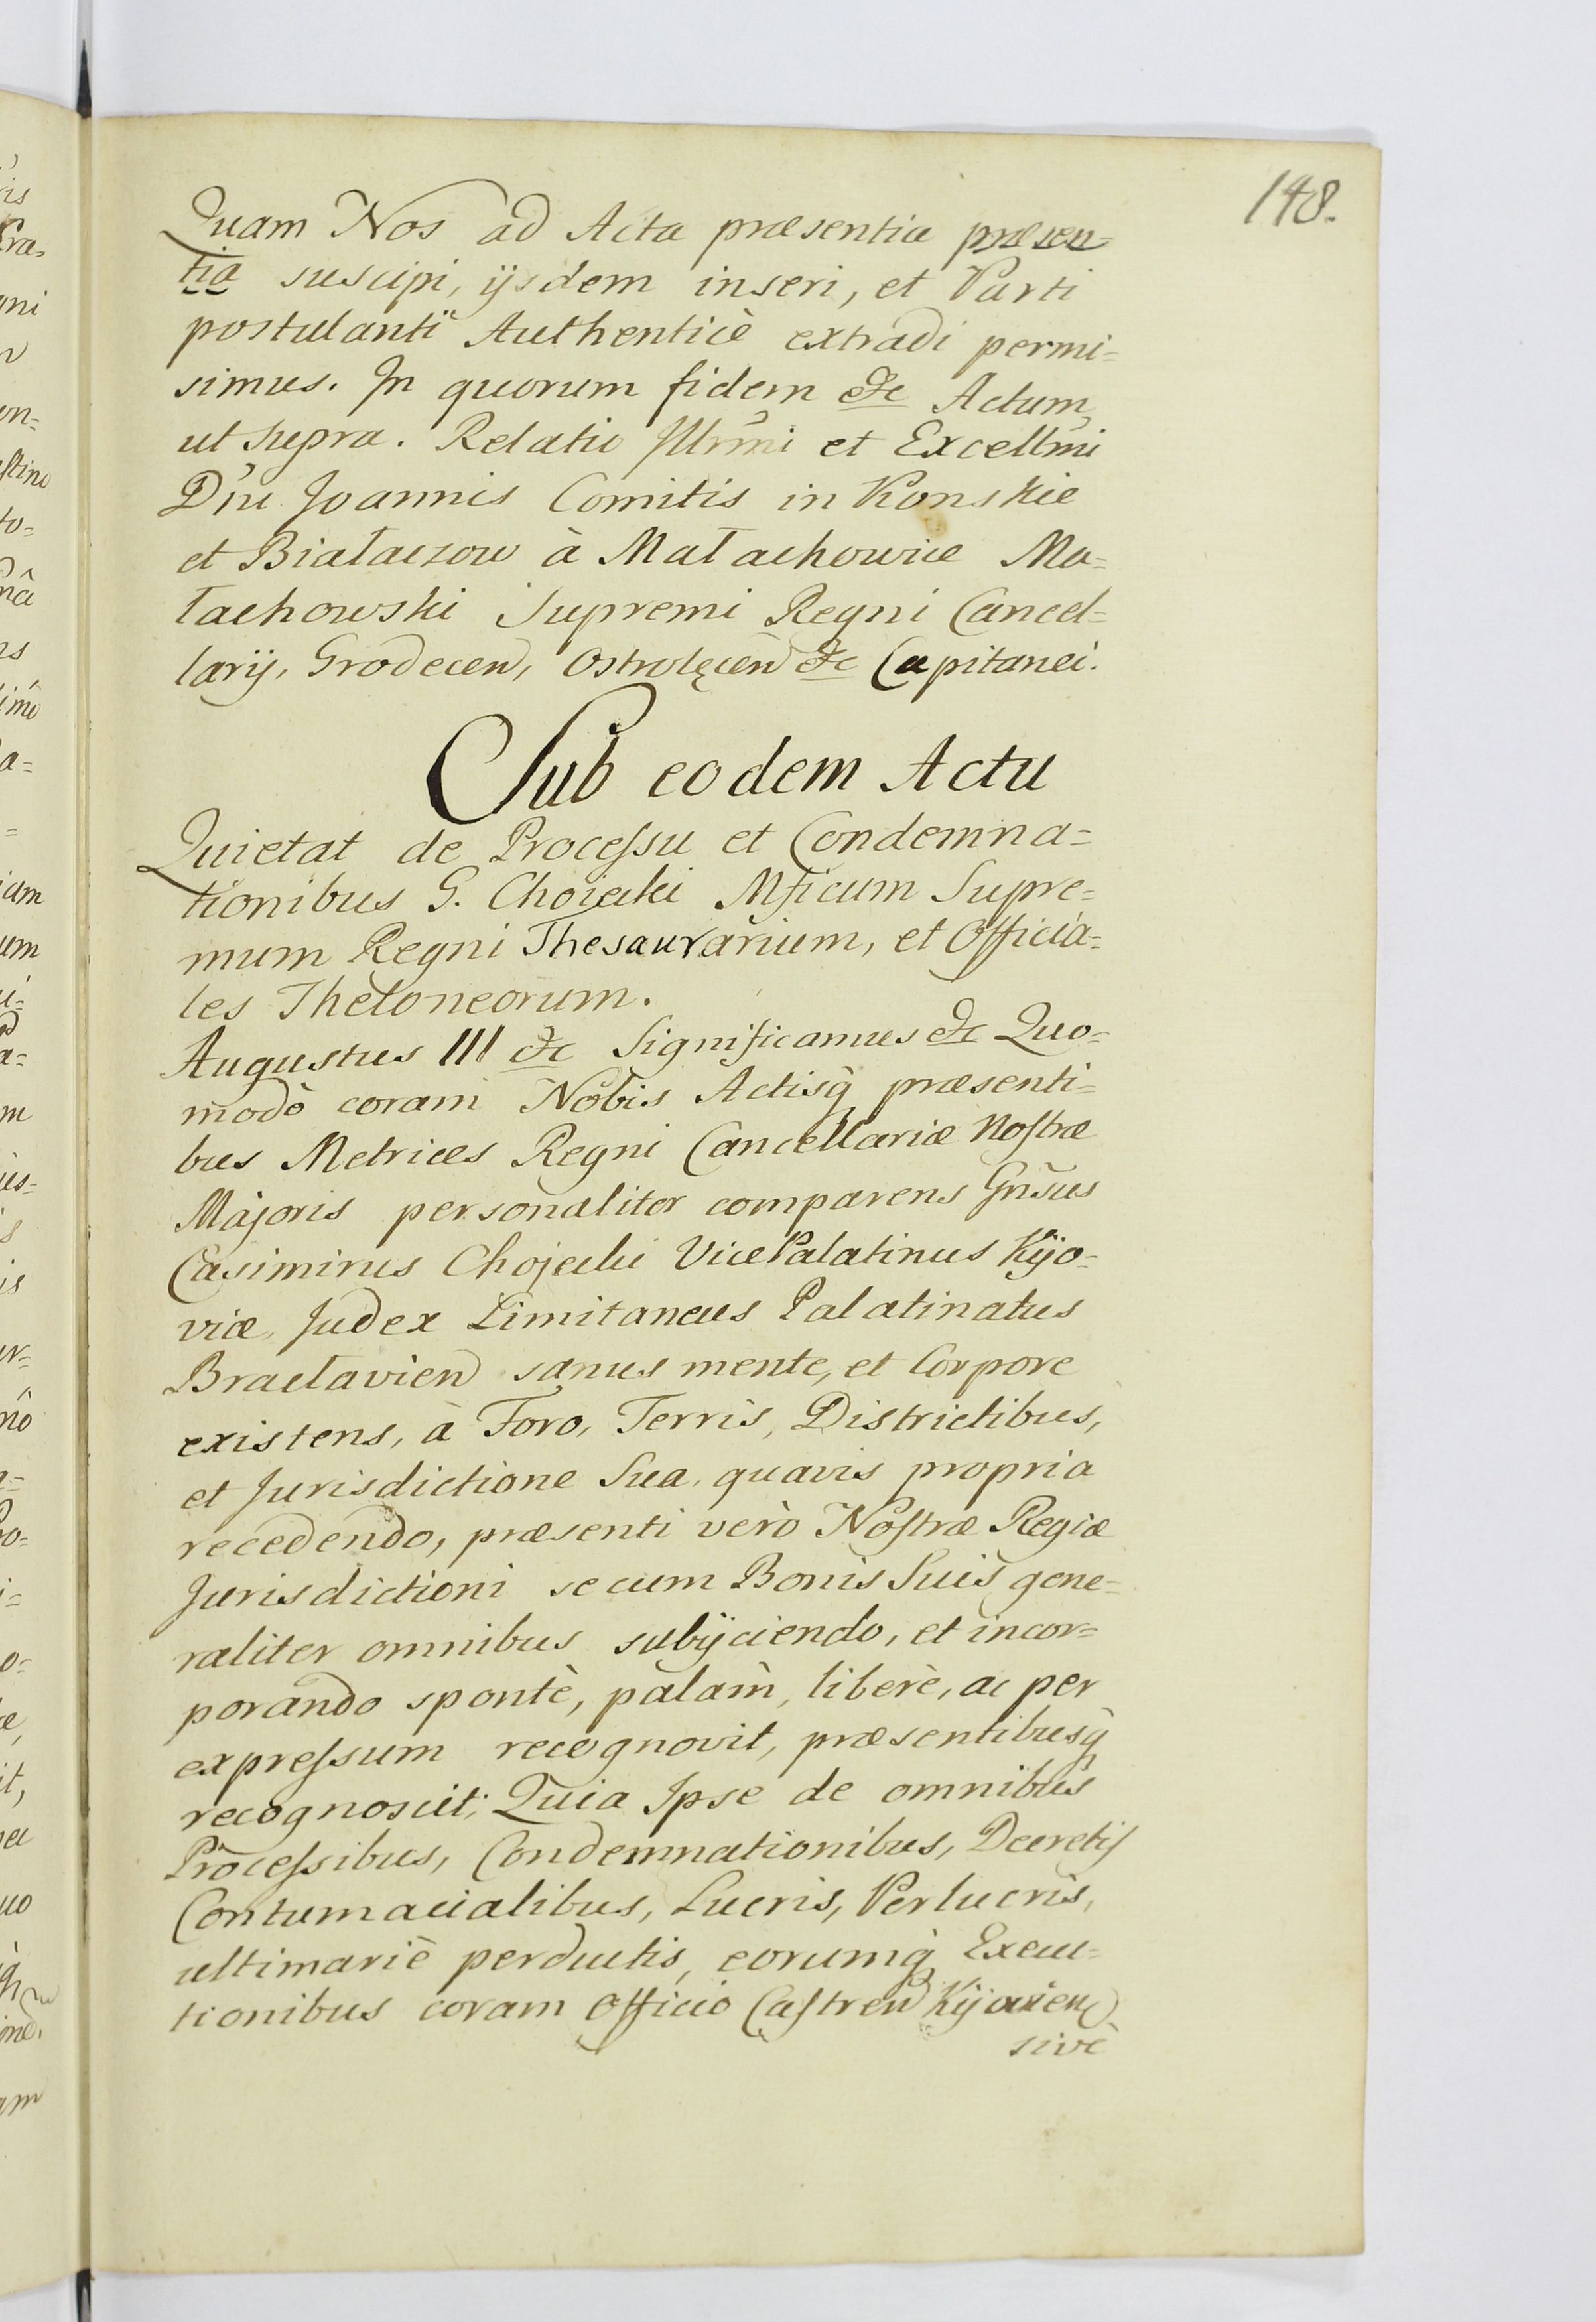 148.
Quam Nos ad Acta præsentia præsen=
tia suscipi, ijsdem inseri, et Parti
postulanti Authenticè extradi permi=
simus. In quorum fidem &c Actum
ut supra. Relatio Illrmi et Excellmi
Dni Joannis Comitis in Konskie
et Białaczow à Małachowice Ma=
łachowski Supremi Regni Cancel=
larij, Grodecen, Ostrolęcen &c Capitanei.
Sub eodem Actu
Quietat de Processu et Condemna=
tionibus G. Choiecki Mficum Supre=
mum Regni Thesaurarium, et Officia=
les Theloneorum.
Augustus III &c Significamus &c Quo=
modò coram Nobis Actisq̃ præsenti=
bus Metrices Regni Cancellariæ Nostræ
Majoris personaliter comparens Gnsus
Casimirus Chojecki VicePalatinus Kijo=
viæ, Judex Limitaneus Palatinatus
Braclavien sanus mente, et Corpore
existens, à Foro, Terris, Districtibus,
et Jurisdictione Sua quavis propria
recedendo, præsenti verò Nostræ Regiæ
Jurisdictioni se cum Bonis Suis gene=
raliter omnibus subijciendo, et incor=
porando spontè, palam, liberè, ac per
expressum recognovit, præsentibusq̃
recognoscit; Quia Ipse de omnibus
Processibus, Condemnationibus, Decretis
Contumacialibus, Lucris, Perlucris,
ultimariè perductis, eorumq̃ Execu=
tionibus coram Officio Castren Kijovien
sivè